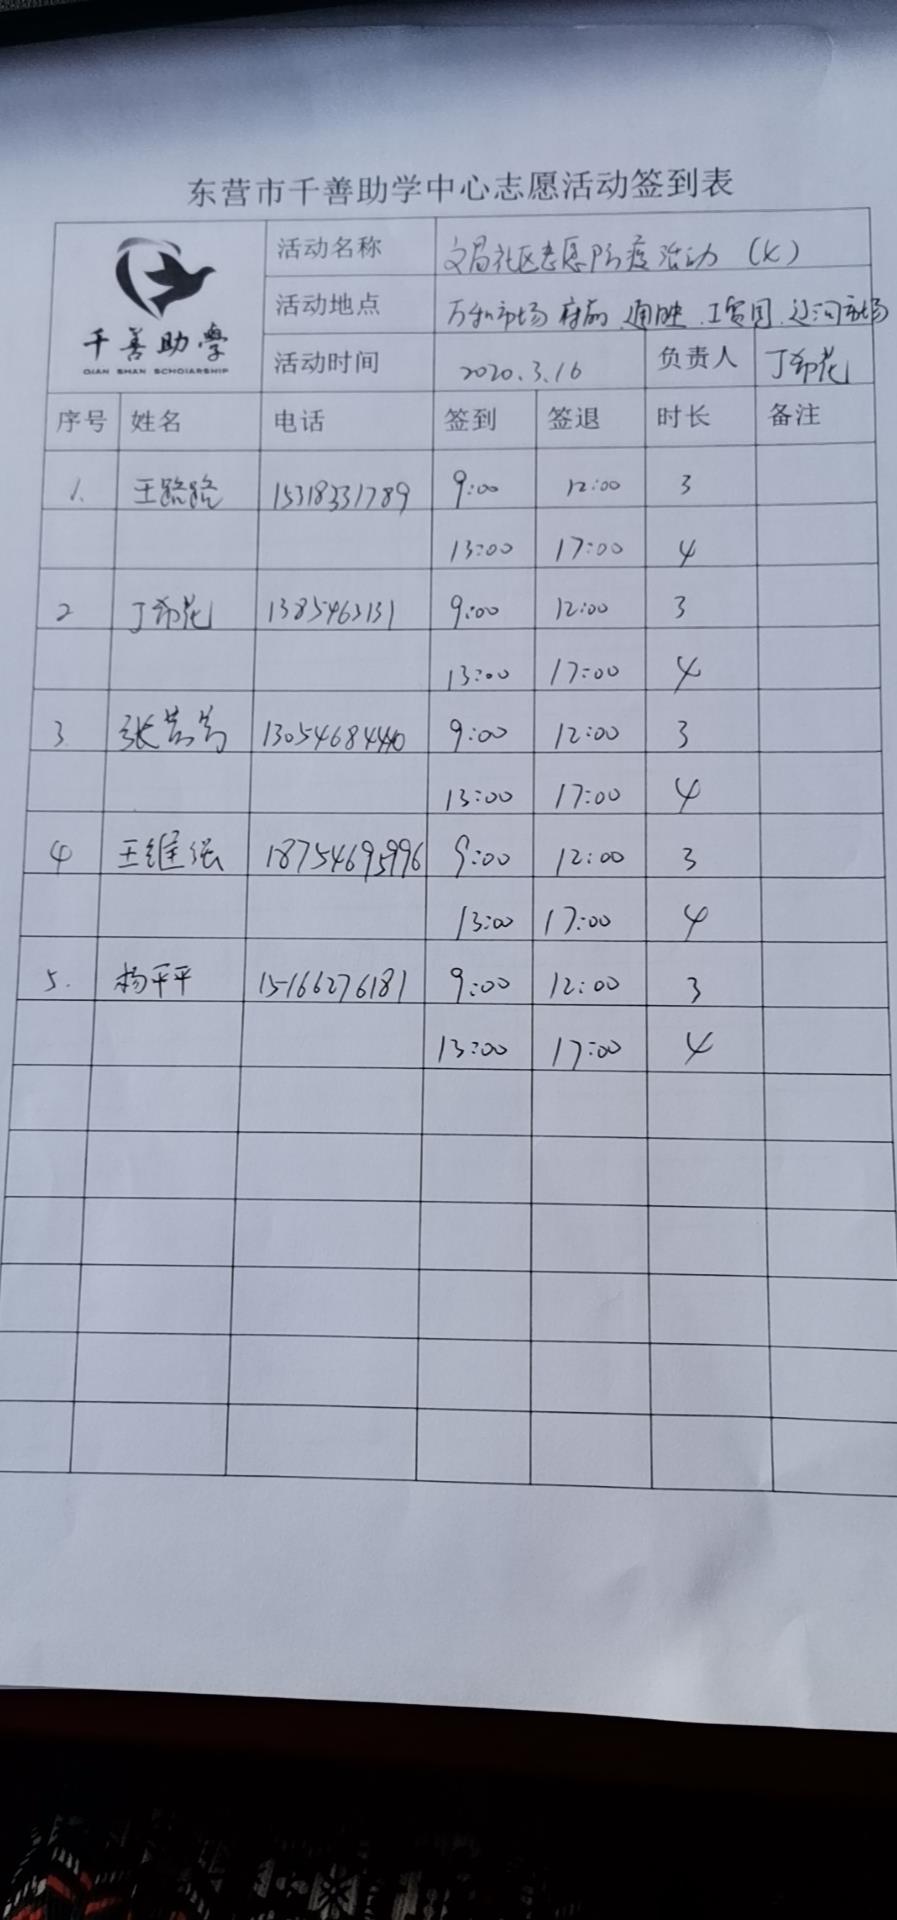 东营市千善助学中心志愿活动签到表
千善助學
QIAN SHAN SCHOLARSHIP
活动名称 文昌社区志愿防疫活动
活动地点 万和市场 府前 通胜 工贸园 辽河市场
活动时间 2020.3.16 负责人 丁希花
序号 姓名 电话 签到 签退 时长 备注
1. 王路路 15318331789 9:00 12:00 3
13:00 17:00 4
2 丁希花 1385463131 9:00 12:00 3
13:00 17:00 4
3 张 13054684440 9:00 12:00 3
13:00 17:00 4
4 王继强 18754695996 9:00 12:00 3
13:00 17:00 4
5. 杨平平 15166276181 9:00 12:00 3
13:00 17:00 4